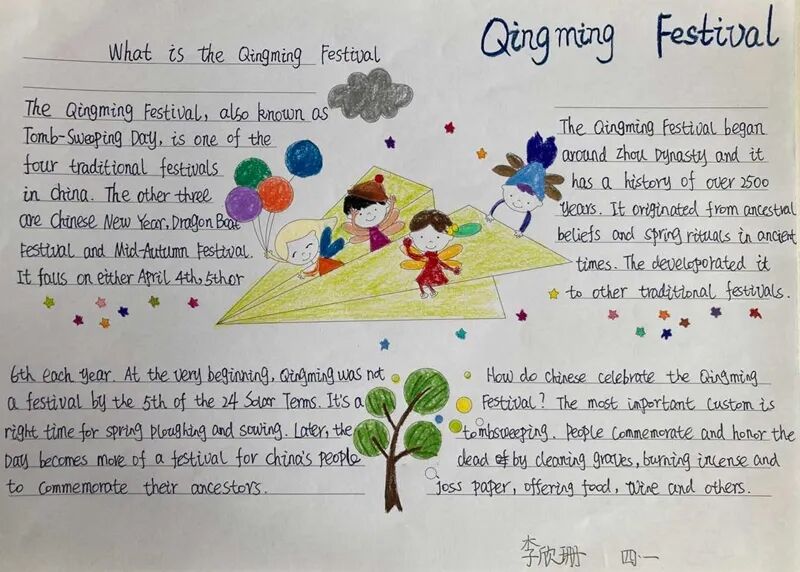 Qingming Festival
What is the Qingming Festival
The Qingming Festival, also known as
Tomb-Sweeping Day, is one of the
four traditional festivals
in China. The other three
are Chinese New Year, Dragon Boat
Festival and Mid-Autumn Festival.
It falls on either April 4th, 5th or
6th each year. At the very beginning, Qingming was not
a festival by the 5th of the 24 Solar Terms. It's a
right time for spring ploughing and sowing. Later, the
Day becomes more of a festival for China's people
to commemorate their ancestors.
The Qingming Festival began
around Zhou Dynasty and it
has a history of over 2500
years. It originated from ancestral
beliefs and spring rituals in ancient
times. The developorated it
to other traditional festivals.
How do Chinese celebrate the Qingming
Festival? The most important custom is
tombsweeping. People commemorate and honor the
dead by cleaning graves, burning incense and
joss paper, offering food, wine and others.
李欣珊 四·一